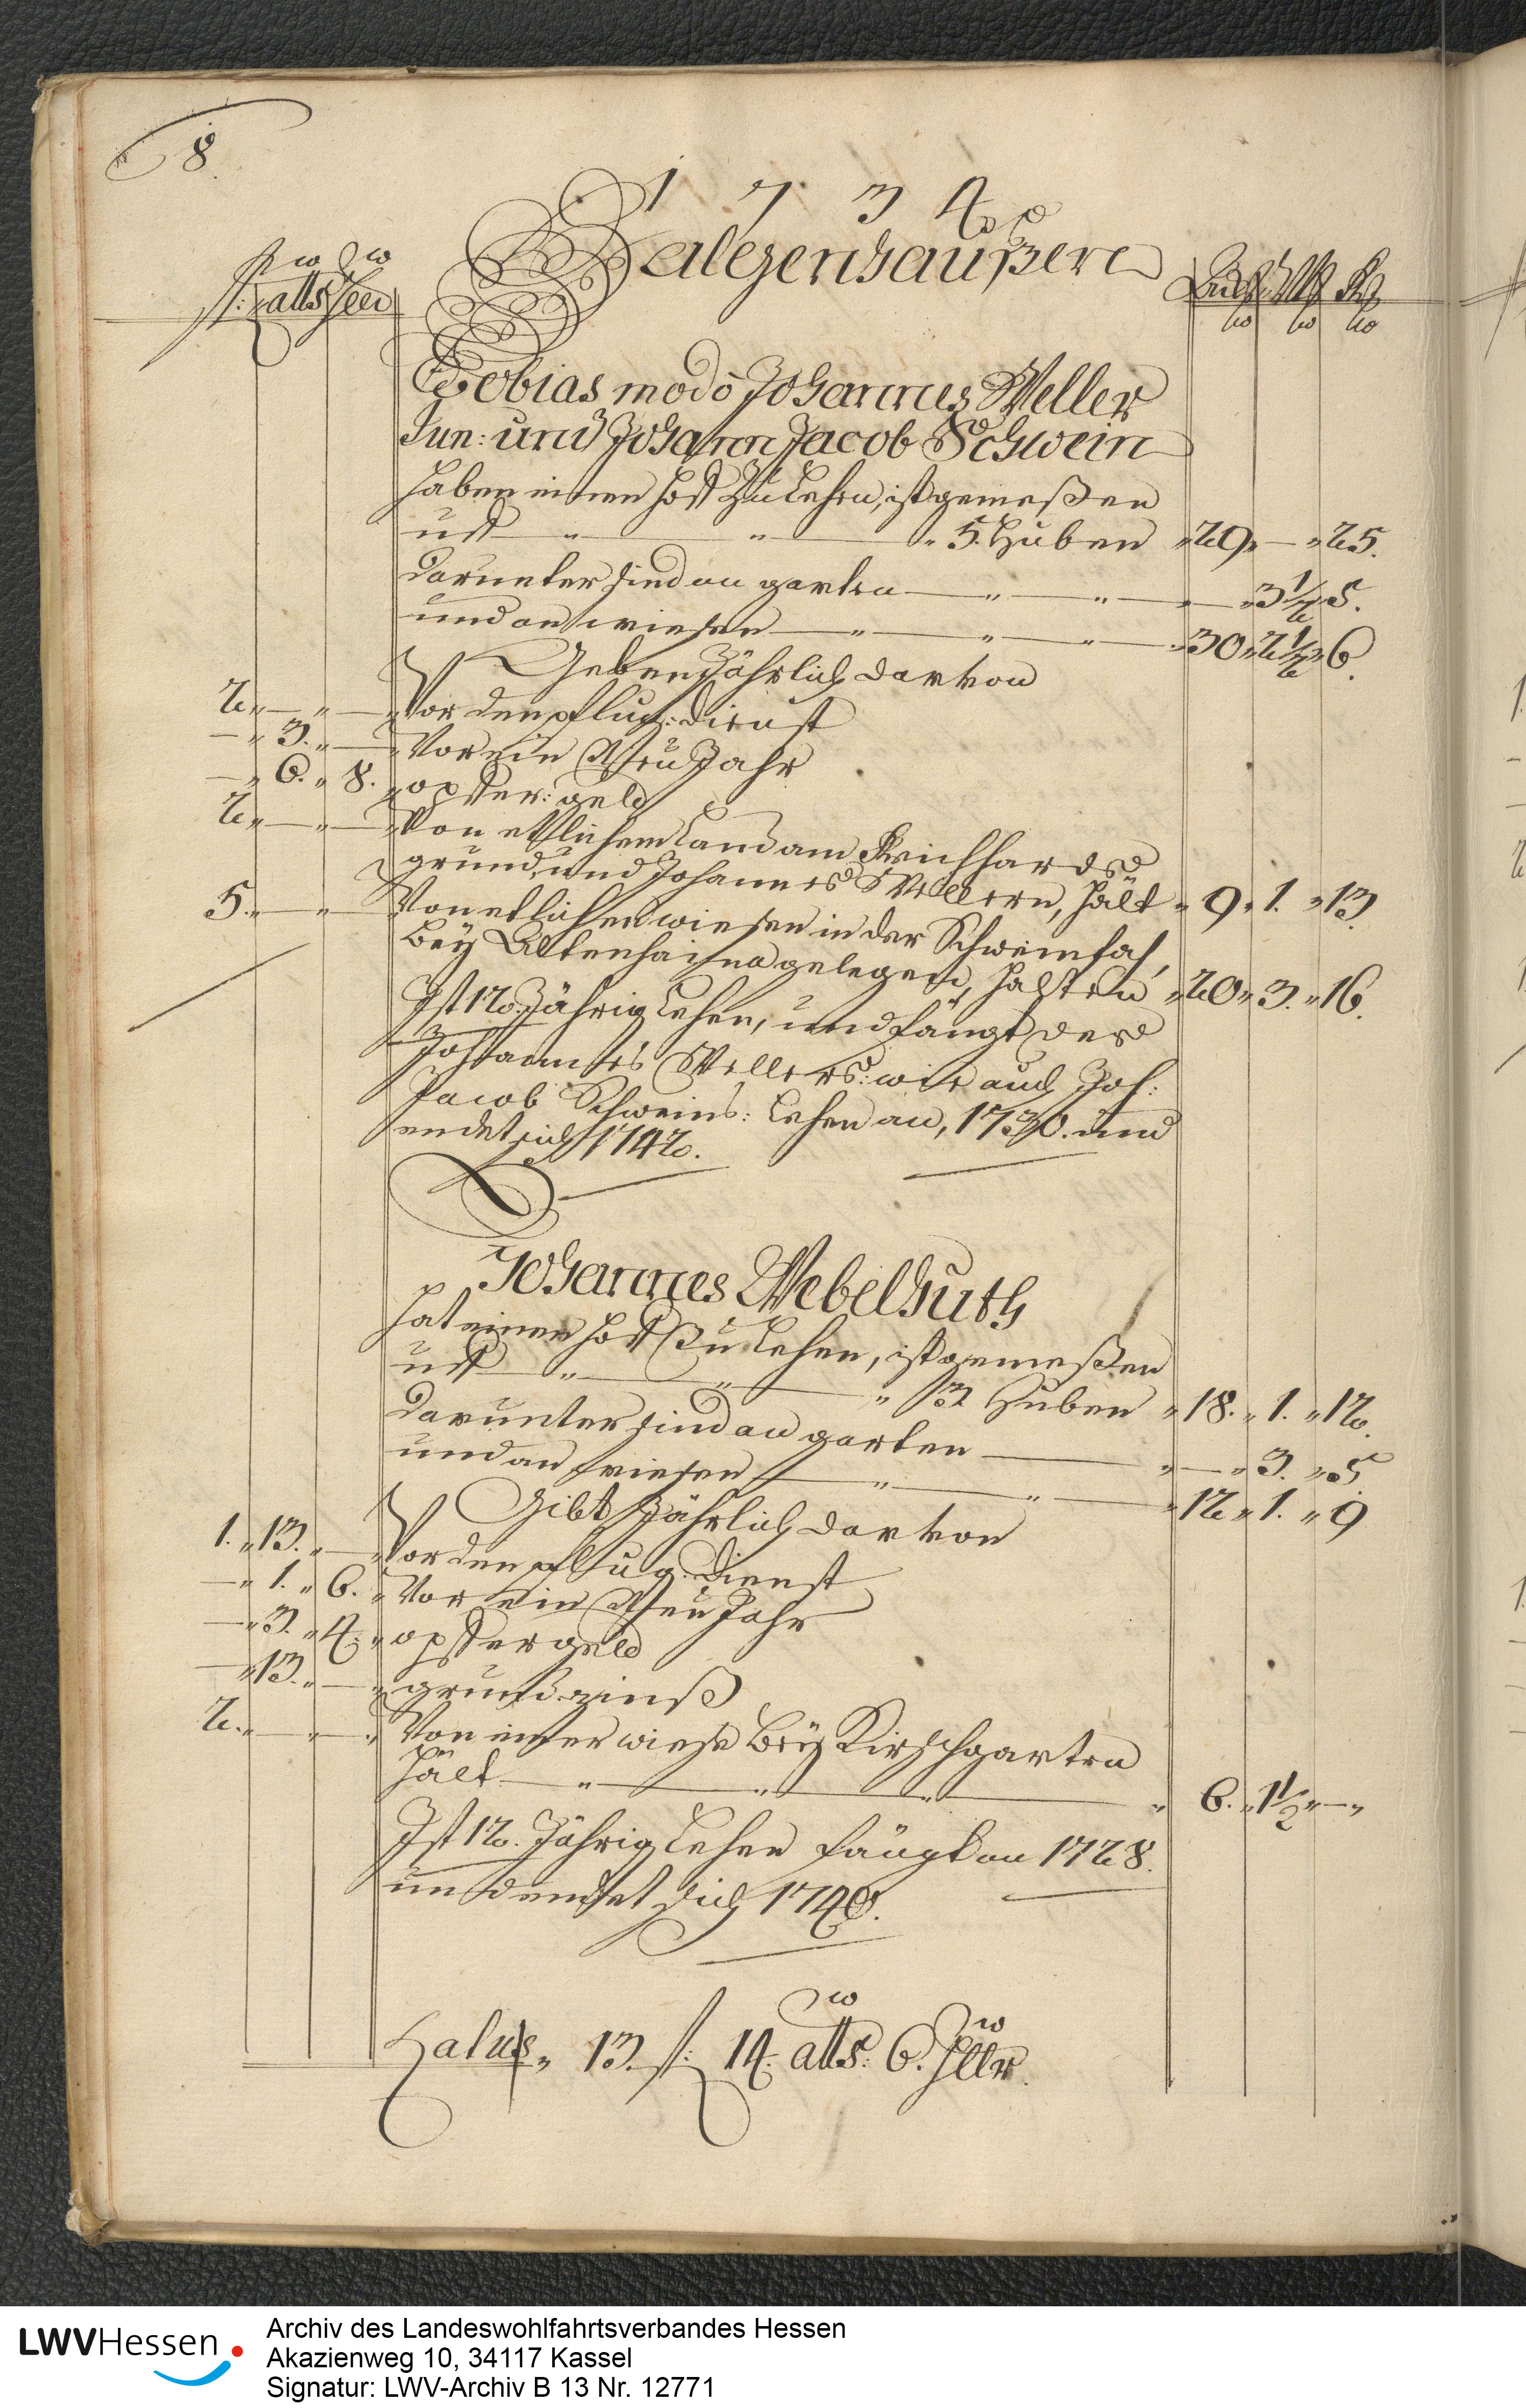 8.
1 7 3 4
Halgenhaußen
fl: alb: hlr
Tobias modò Johannes Weller
Jun: und Johann Jacob Schwein
haben einen Hoff zu Lehen, ist gemeßen
uff " " " 5. Huben " 29 " — " 25.
darunter sind an garten — " " — " 3 1/2 5.
und an wiesen — " " " 30 " 2 1/2 " 6.
Geben Jährlich darvon
2 " — " — " Vor den pflug: dienst
— " 3. " — " Vor ein Neu Jahr
— " 6. " 8. " opffer: geld
2 " — " — " Von etlichem Land am
grund, und Johannes Wellern, hält " 9 " 1. " 13.
5. " — " — Von etlichen wiesen in der Schweinfah,
bey Altenhaina gelegen, halten " 20 " 3. " 16.
Ist 12. Jährig Lehen, und fängt des
Johannes Wellers: wie auch Joh:
Jacob Schweins: Lehen an, 1730. und
endet sich 1742.
Johannes Webelhuth
hat einen Hoff zu Lehen, ist gemeßen
uff " " " 3 Huben " 18. " 1. " 12.
darunter sind an garten — " — " 3. " 5.
und an wiesen — " " " 12 " 1. " 9
Gibt Jährlich darvon
1. " 13. " — " Vor den pflug. Dienst
— " 1. " 6. " Vor ein Neu Jahr
— " 3. " 4. " opffer geld
— " 13. " — " grund zinß
2. " — " — " Von einer wiese bey Kirschgarten
hält — " " " " 6. " 1 1/2 " — "
Ist 12. Jährig Lehen fängt an 1728.
und endet sich 1740.
Latus " 13. fl: 14. alb: 6. hlr.
LWVHessen
Archiv des Landeswohlfahrtsverbandes Hessen
Akazienweg 10, 34117 Kassel
Signatur: LWV-Archiv B 13 Nr. 12771